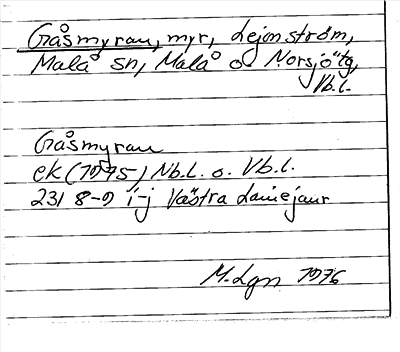 Gåsmyran, myr, Lejonström,
Malå sn, Malå o Norsjö tg,
Vb.l.
Gåsmyran
ek (1975) Nb.l. o. Vb.l.
23I 8-9 i-j Västra Lainejaur
M.Lgn 1976